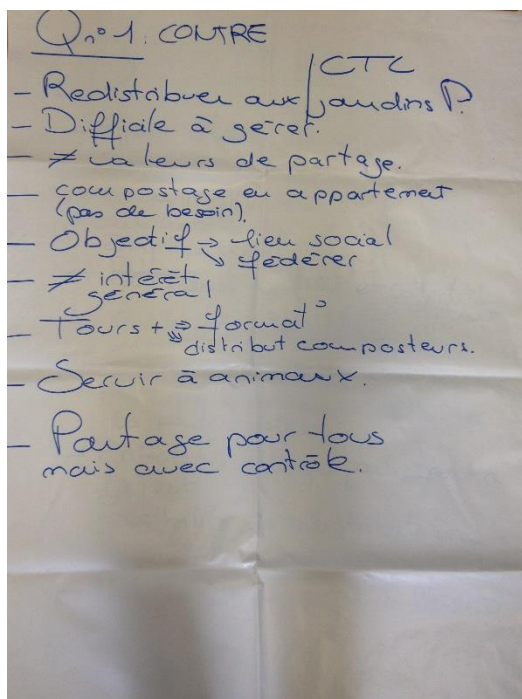 Q n° 1 : CONTRE
CTC
- Redistribuer aux jardins P.
- Difficile à gérer.
- ≠ valeurs de partage.
- compostage en appartement
(pas de besoin).
- Objectif → lieu social
↘ fédérer
- ≠ intérêt
général
- Tours + ⇒ format°
distribut composteurs.
- Servir à animaux.
- Partage pour tous
mais avec contrôle.